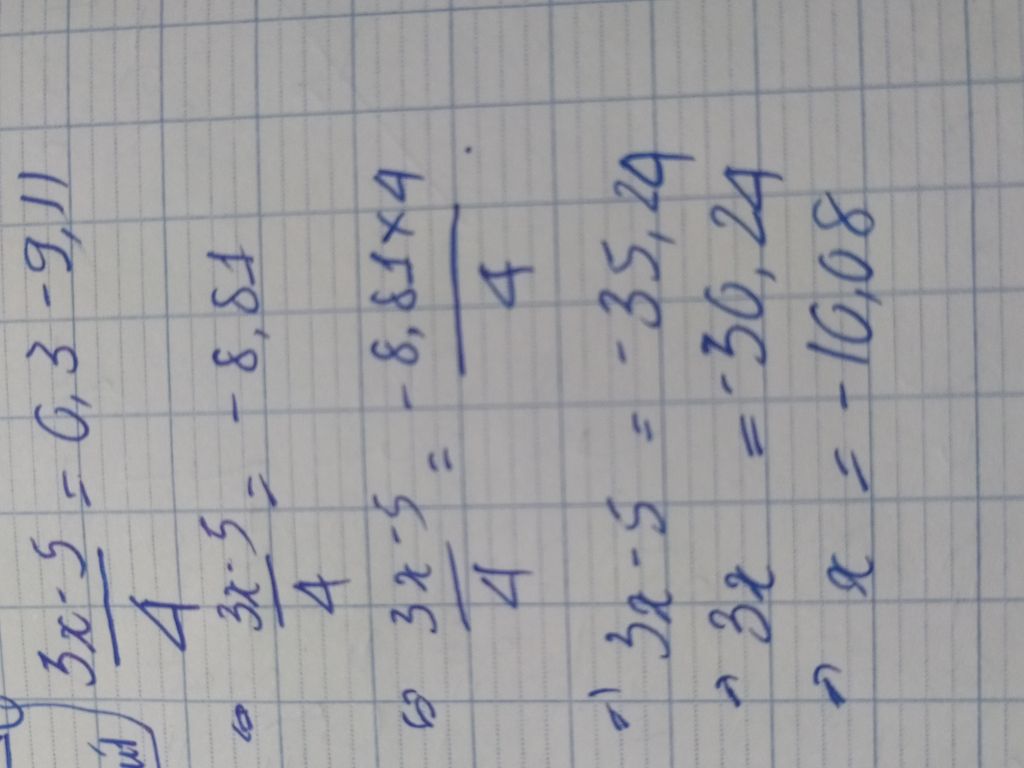 3x-5/4 = 0,3 - 9,11
⇔ 3x-5/4 = - 8,81
⇔ 3x-5/4 = - 8,81×4/4
⇒ 3x-5 = - 35,24
⇒ 3x = - 30,24
⇒ x = - 10,08